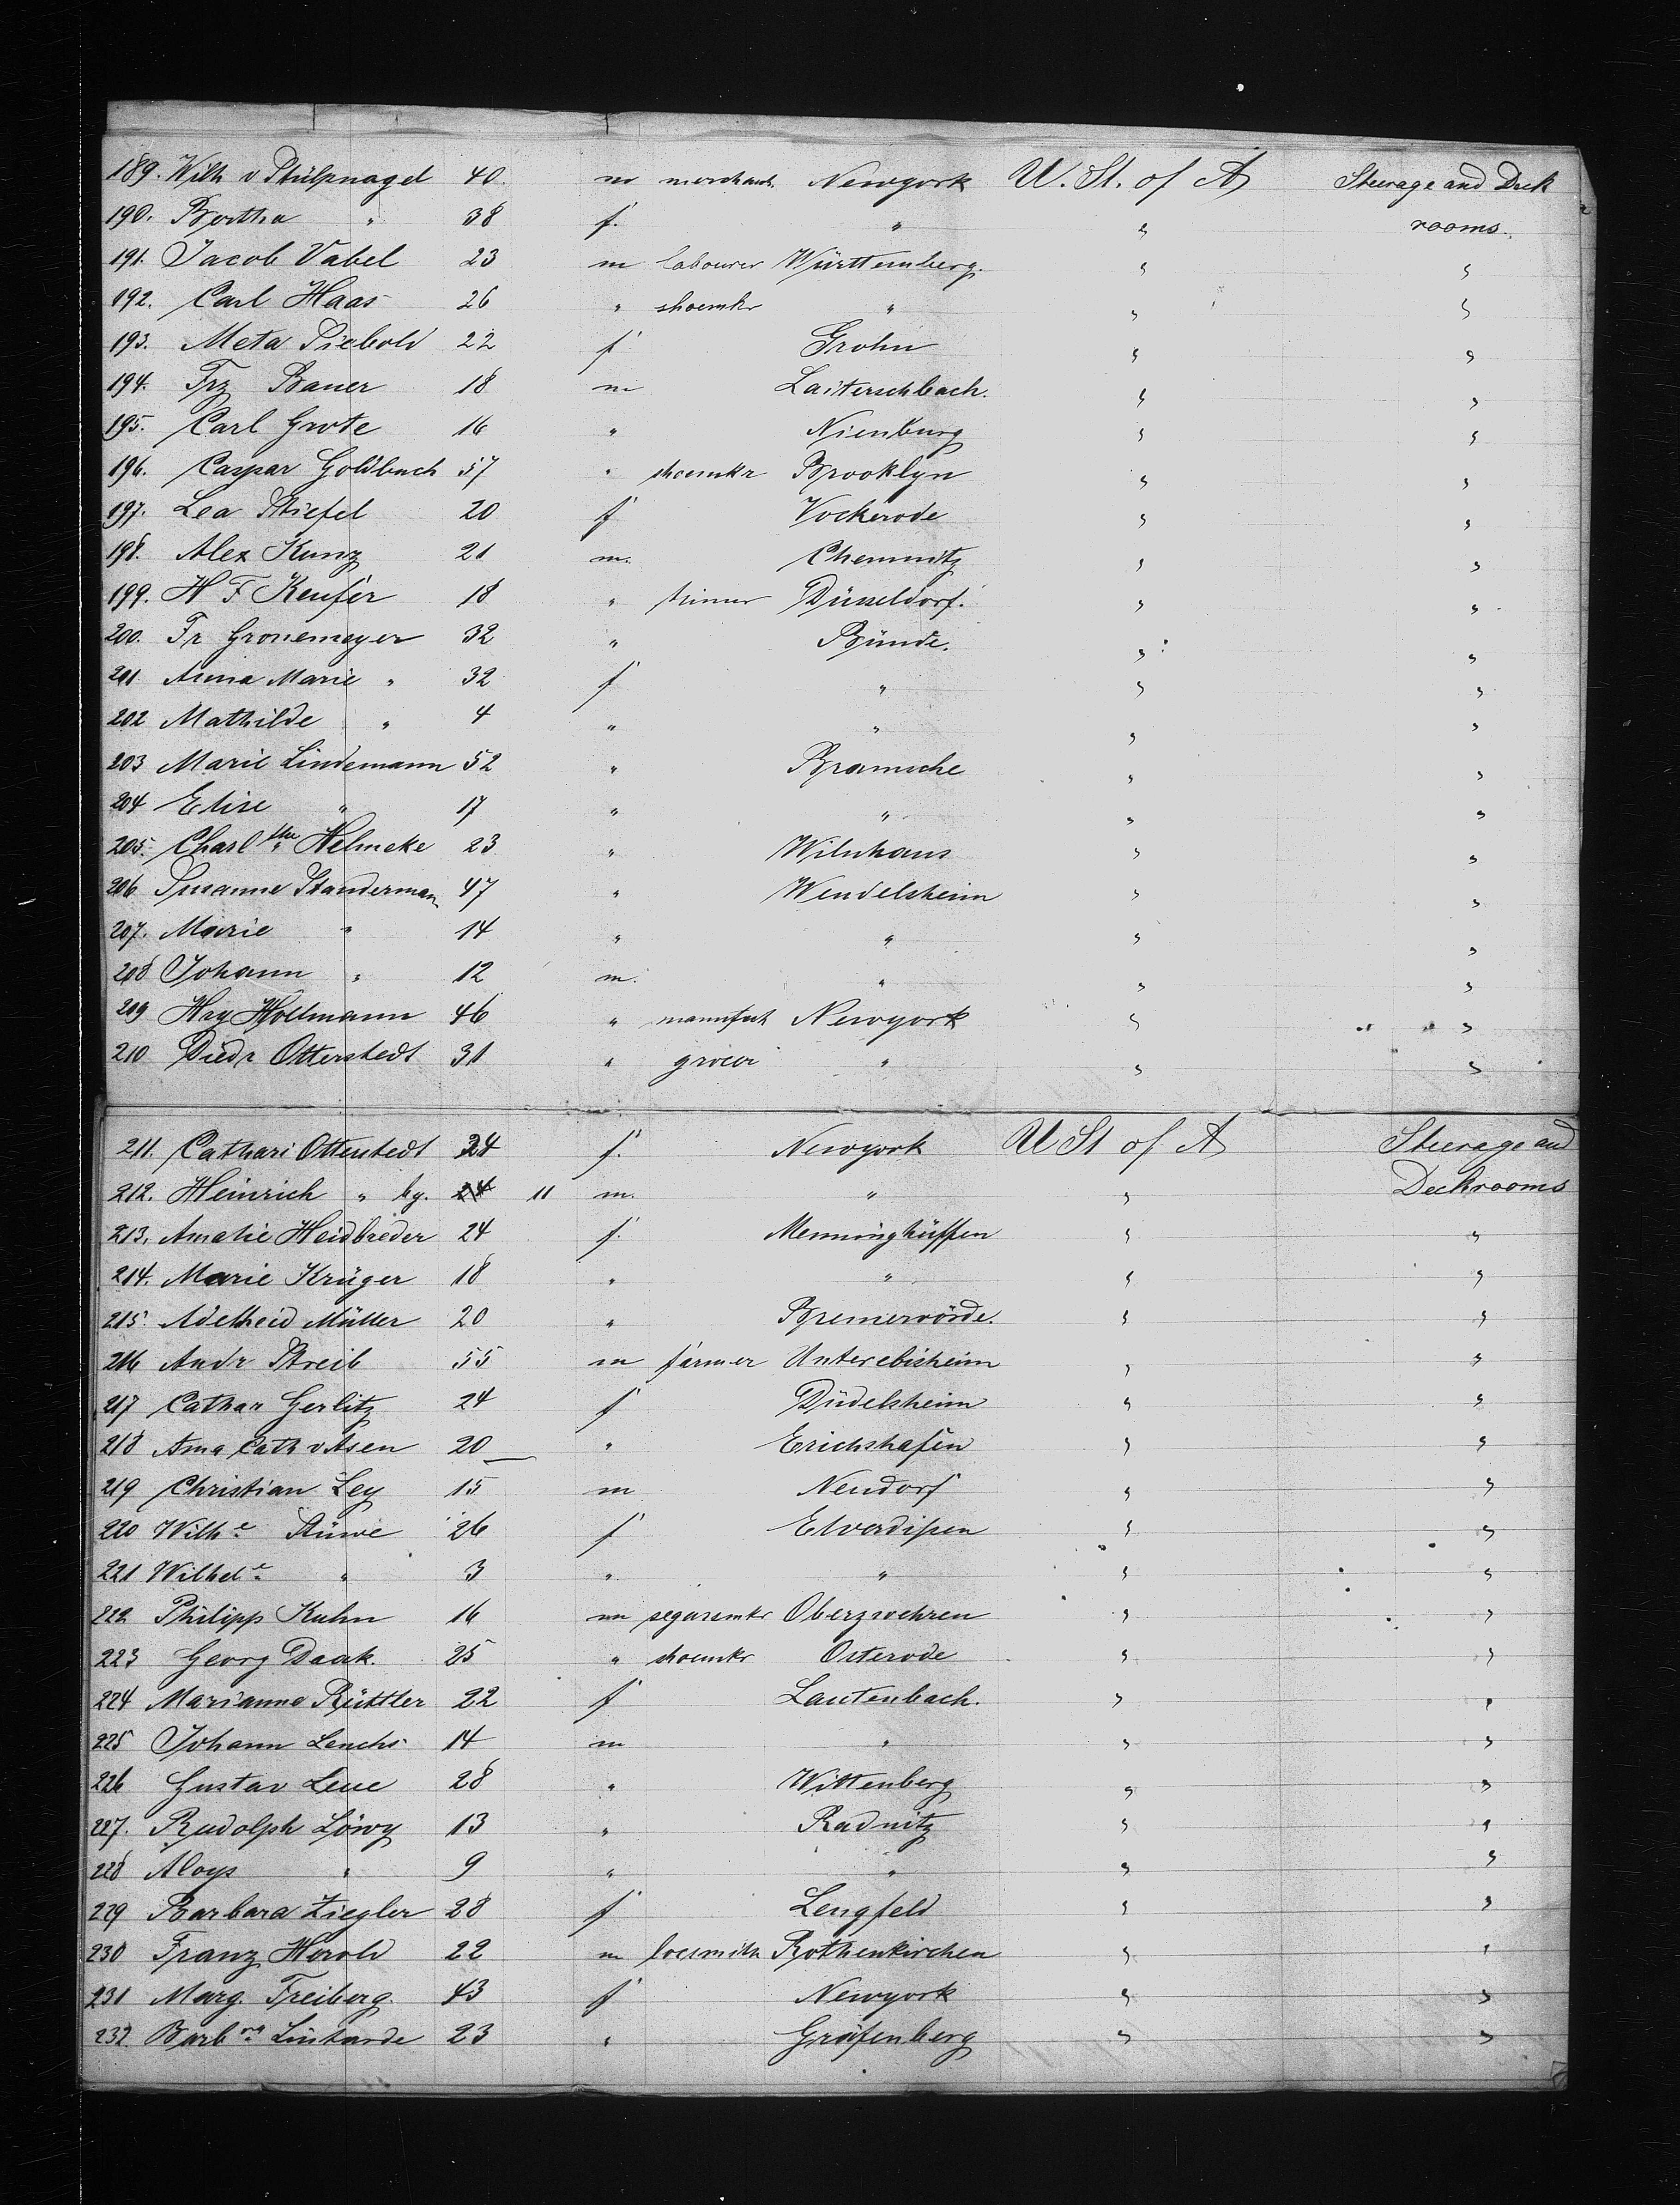 189. Wilh v Stülpnagel 40. m merchant. Newyork U. St. of A Steerage and Deck
190. Bertha " 38 f. " " rooms.
191. Jacob Vabel 23 m labourer Württemberg. " "
192. Carl Haas 26 " shoemkr " " "
193. Meta Siebold 22 f Grohn " "
194. Frz Bauer 18 m Laiterschbach. " "
195. Carl Grote 16 " Nienburg " "
196. Caspar Goldbach 57 " shoemkr Brooklyn " "
197. Lea Stiefel 20 f Vockerode " "
198. Alex Kunz 21 m. Chemnitz " "
199. H F Keufer 18 " Düsseldorf. " "
200. Fr Gronemeyer 32 " Bünde. " "
201 Anna Marie " 32 f " " "
202 Mathilde " 4 " " " "
203 Marie Lindemann 52 " Bramsche " "
204 Elise " 17 " " " "
205. Charl tte Helmeke 23 " " "
206 Susanne Standerman 47 " Wendelsheim " "
207. Marie " 14 " " " "
208 Johann " 12 m. " " "
209 Hry Holtmann 46 " manufact Newyork " "
210 Diedr Otterstedt 31 " grocer " " "
211. Cathari Otterstedt 24 f. Newyork U St of A Steerage and
212. Heinrich " by. 24 11 m. " " Deckrooms
213. Amalie Heidbreder 24 f. Menninghüffen " "
214. Marie Krüger 18 " " " "
215. Adelheid Müller 20 " Bremervörde. " "
216 Andr Streib 55 m farmer Unterebisheim " "
217 Cathar Gerlitz 24 f Düdelsheim " "
218 Anna Cath v Asen 20 " Erichshafen " "
219 Christian Ley 15 m Neudorf " "
220 Wilh e Stüwe 26 f Elverdissen " "
221 Wilhel e " 3 " " " "
222 Philipp Kuhn 16 m segarsmkr Oberzwehren " "
223 Georg Daak. 25 " shoemkr Osterode " "
224 Marianne Rüttler 22 f Lautenbach. " "
225 Johann Lenchs 14 m " " "
226 Gustav Leue 28 " Wittenberg " "
227. Rudolph Löwy 13 " Radnitz " "
228 Aloys " 9 " " " "
229 Barbara Ziegler 28 f Lengfeld " "
230 Franz Herold 22 m locsmith Rothenkirchen " "
231 Marg. Freiberg. 43 f Newyork " "
232. Barb ra Linharde 23 " Gräfenberg " "